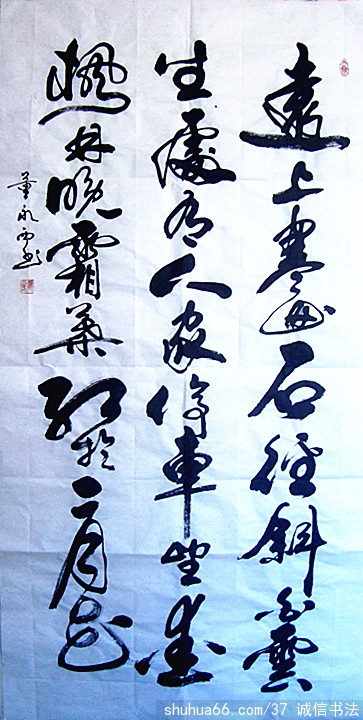 遠上寒山石徑斜白雲
生處有人家停車坐愛
楓林晚霜葉紅於二月花
董永西书
shuhua66.com/37 诚信书法